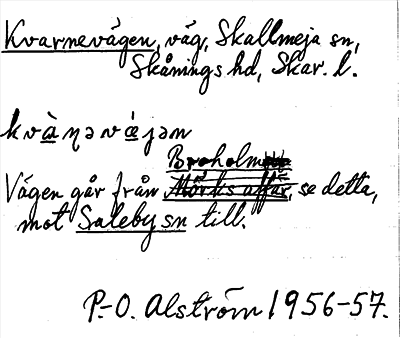 Kvarnevägen, väg, Skallmeja sn,
Skånings hd, Skar. l.
kvàṇəvǽjən
Broholm
Vägen går från Mörks affär, se detta,
mot Saleby sn till.
P.-O. Alström 1956-57.